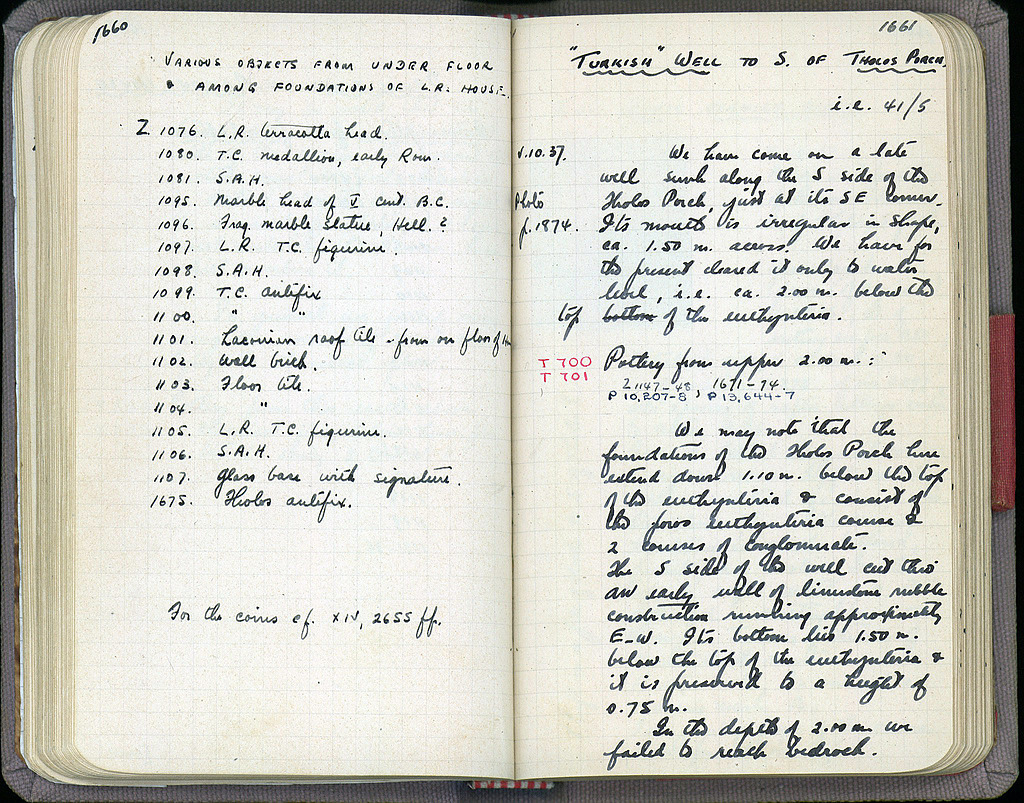 1660
VARIOUS OBJECTS FROM UNDER FLOOR
& AMONG FOUNDATIONS OF L.R. HOUSE.
Z 1076. L.R. terracotta head.
1080. T.C. medallion, early Rom.
1081. S.A.H.
1095. Marble head of V cent. B.C.
1096. Frag. marble statue, Hell.?
1097. L.R. T.C. figurine.
1098. S.A.H.
1099. T.C. antifix
1100. " "
1101. Laconian roof tile - from on floor of
1102. Wall brick.
1103. Floor tile.
1104. "
1105. L.R. T.C. figurine.
1106. S.A.H.
1107. Glass base with signature.
1675. Tholos antifix.
For the coins cf. XIV, 2655 ff.
1661
"TURKISH" WELL TO S. OF THOLOS PORCH.
i.e. 41/5
V.10.37. We have come on a late
well sunk along the S side of the
Photo Tholos Porch, just at its SE corner.
p. 1874. Its mouth is irregular in shape,
ca. 1.50 m. across. We have for
the present cleared it only to water
level, i.e. ca. 2.00 m. below the
top bottom of the euthynteria.
T 700 Pottery from upper 2.00 m.:
T 701
Z 1147-48, 1671-74.
P 10,207-8, P 13,644-7
We may note that the
foundations of the Tholos Porch here
extend down 1.10 m. below the top
of the euthynteria & consist of
the poros euthynteria course &
2 courses of conglomerate.
The S side of the well cut thro'
an early wall of limestone rubble
construction running approximately
E-W. Its bottom lies 1.50 m.
below the top of the euthynteria &
it is preserved to a height of
0.75 m.
In the depth of 2.00 m. we
failed to reach bedrock.